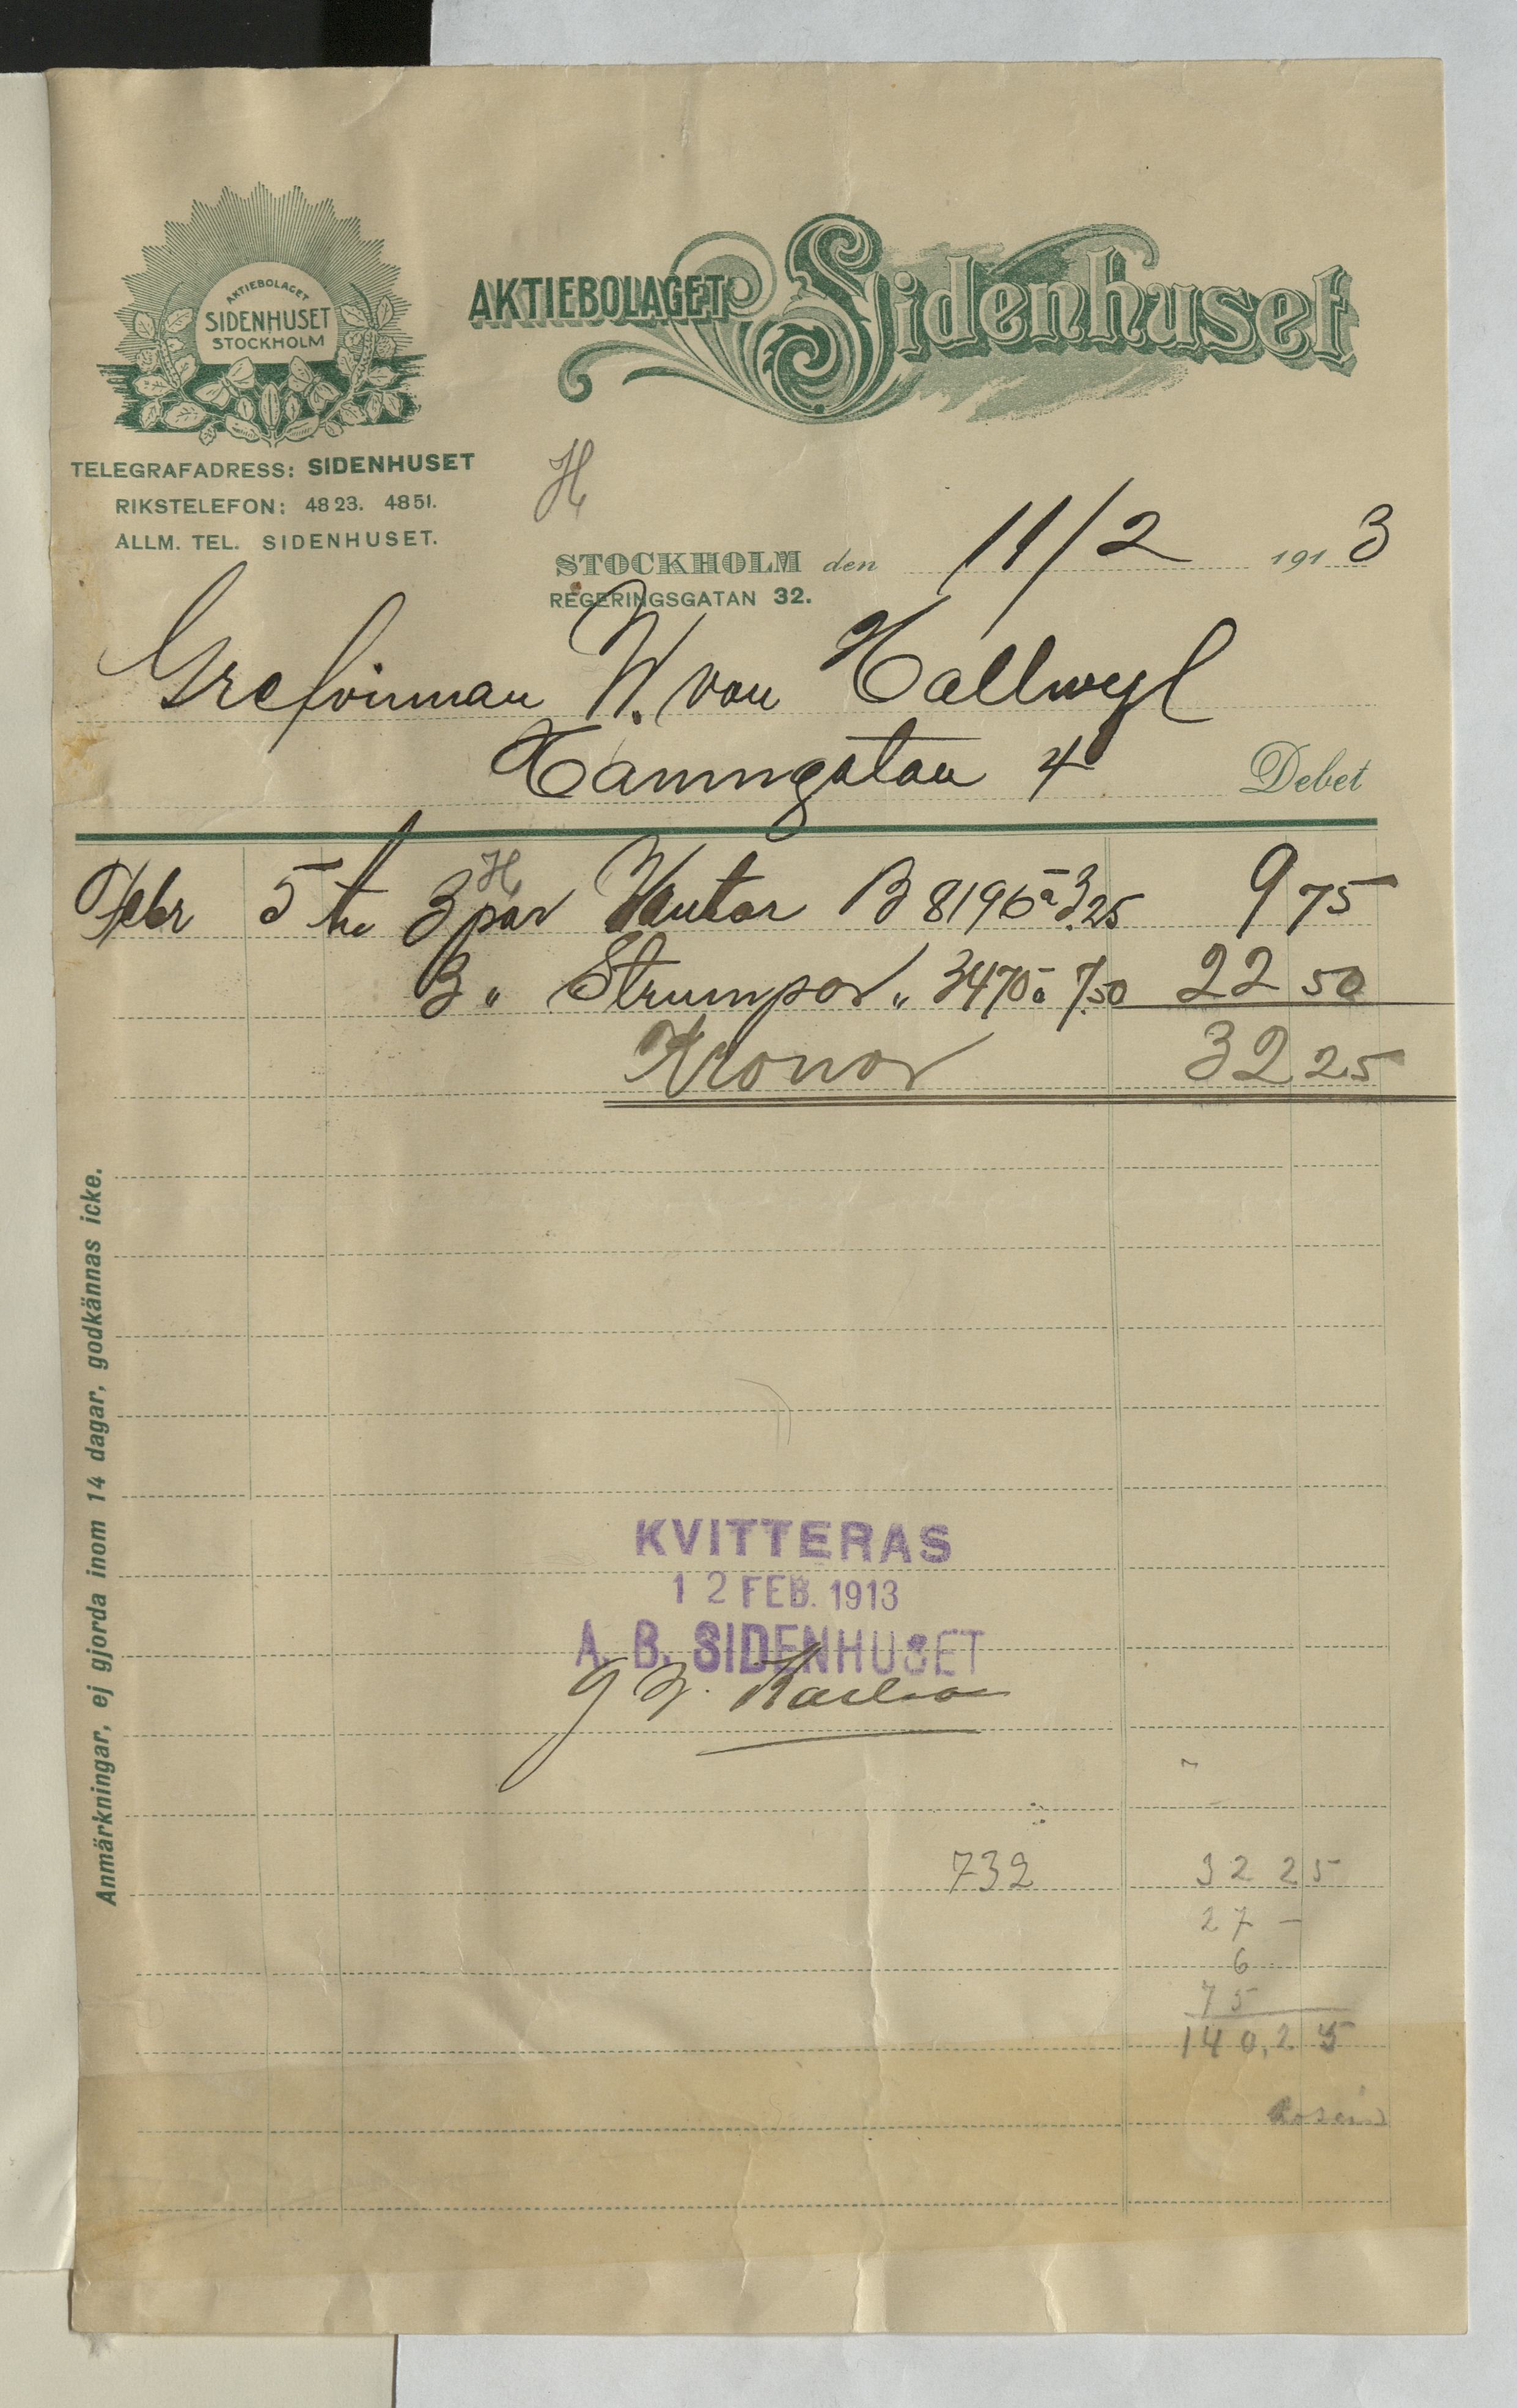 AKTIEBOLAGET
SIDENHUSET
STOCKHOLM
AKTIEBOLAGET Sidenhuset
TELEGRAFADRESS: SIDENHUSET
RIKSTELEFON: 4823. 4851.
ALLM. TEL. SIDENHUSET.
H
STOCKHOLM den 11/2 1913
REGERINGSGATAN 32.
Grefvinnan W. von Hallwyl
Hamngatan 4 Debet
H
Febr 5 3 par Vantar B 8196 à 3.25 9 75
3 " Strumpor " 3470 à 7.50 22 50
Kronor 32 25
Anmärkningar, ej gjorda inom 14 dagar, godkännas icke.
KVITTERAS
12 FEB. 1913
A. B. SIDENHUSET
732 32 25
27 —
6
75
140,25